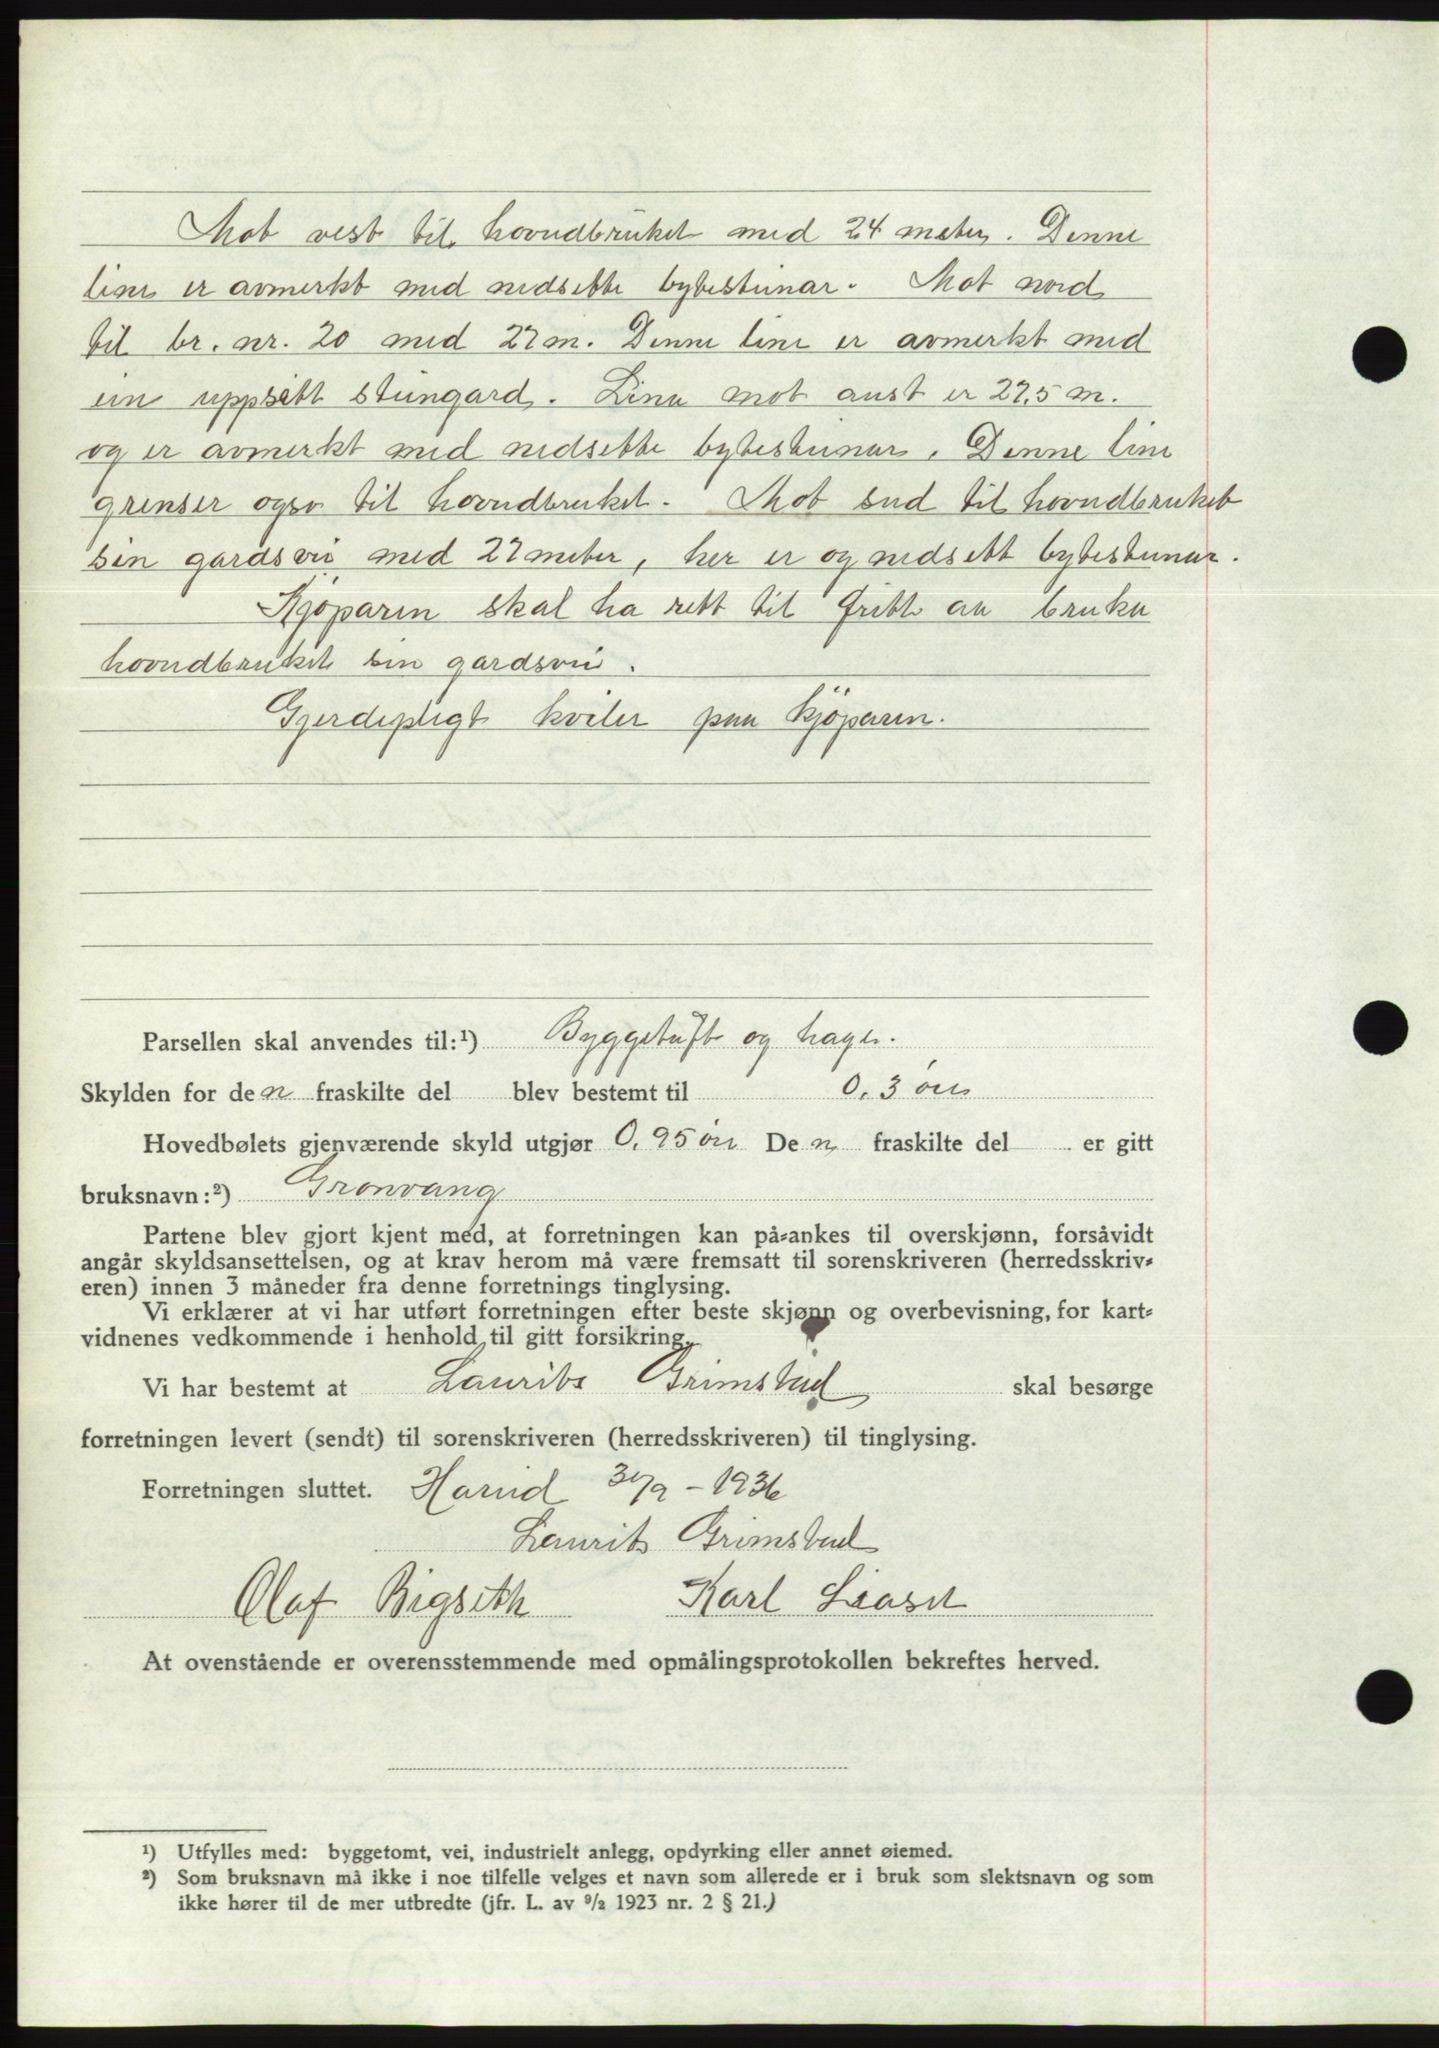 Mot vest til hovudbruket med 24 meter. Denne
line er avmerkt med nedsette bytesteinar. Mot nord
til br. nr. 20 med 27 m. Denne line er avmerkt med
ein uppsett steingard. Lina mot aust er 27,5 m.
og er avmerkt med nedsette bytesteinar. Denne line
grenser ogso til hovudbruket. Mot sud til hovudbruket
sin gardsvei med 27 meter, her er og nedsett bytesteinar.
Kjöparen skal ha rett til fritt aa bruka
hovudbruket sin gardsvei.
Gjerdepligt kviler paa kjöparen.
Parsellen skal anvendes til:¹) Byggetuft og hage.
Skylden for den fraskilte del blev bestemt til 0.3 öre
Hovedbølets gjenværende skyld utgjør 0.95 öre Den fraskilte del er gitt
bruksnavn:²) Grønvang
Partene blev gjort kjent med, at forretningen kan på-ankes til overskjønn, forsåvidt
angår skyldsansettelsen, og at krav herom må være fremsatt til sorenskriveren (herredsskriv-
eren) innen 3 måneder fra denne forretnings tinglysing.
Vi erklærer at vi har utført forretningen efter beste skjønn og overbevisning, for kart-
vidnenes vedkommende i henhold til gitt forsikring.
Vi har bestemt at Laurits Grimstad skal besørge
forretningen levert (sendt) til sorenskriveren (herredsskriveren) til tinglysing.
Forretningen sluttet. Hareid 30/9 - 1936
Laurits Grimstad
Olaf Bigseth Karl Liaset
At ovenstående er overensstemmende med opmålingsprotokollen bekreftes herved.
¹) Utfylles med: byggetomt, vei, industrielt anlegg, opdyrking eller annet øiemed.
²) Som bruksnavn må ikke i noe tilfelle velges et navn som allerede er i bruk som slektsnavn og som
ikke hører til de mer utbredte (jfr. L. av 9/2 1923 nr. 2 § 21.)